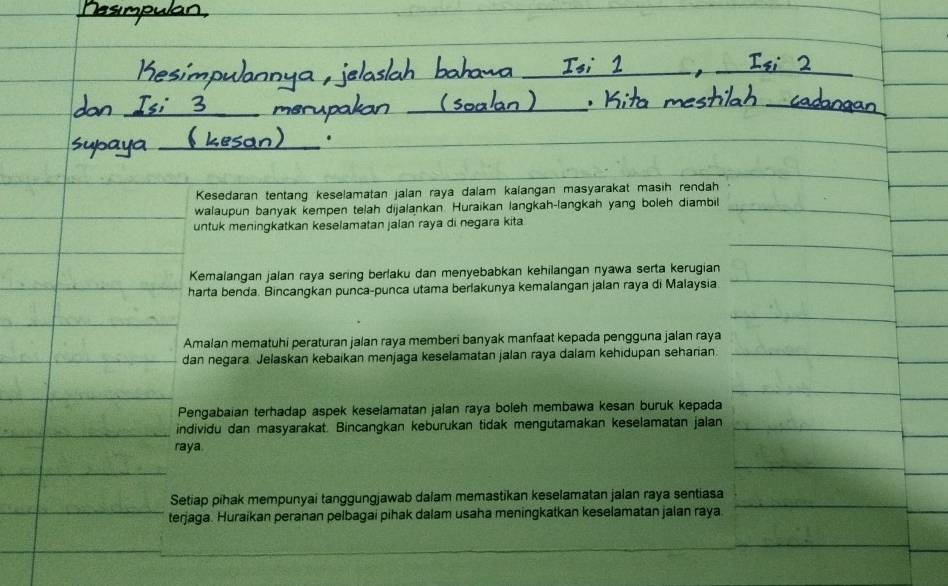 Kesimpulan,
Kesimpulannya, jelaslah bahawa Isi 1, Isi 2
dan Isi 3 merupakan (soalan). Kita mestilah cadangan
supaya (kesan).
Kesedaran tentang keselamatan jalan raya dalam kalangan masyarakat masih rendah
walaupun banyak kempen telah dijalankan. Huraikan langkah-langkah yang boleh diambil
untuk meningkatkan keselamatan jalan raya di negara kita
Kemalangan jalan raya sering berlaku dan menyebabkan kehilangan nyawa serta kerugian
harta benda. Bincangkan punca-punca utama berlakunya kemalangan jalan raya di Malaysia.
Amalan mematuhi peraturan jalan raya memberi banyak manfaat kepada pengguna jalan raya
dan negara. Jelaskan kebaikan menjaga keselamatan jalan raya dalam kehidupan seharian.
Pengabaian terhadap aspek keselamatan jalan raya boleh membawa kesan buruk kepada
individu dan masyarakat. Bincangkan keburukan tidak mengutamakan keselamatan jalan
raya.
Setiap pihak mempunyai tanggungjawab dalam memastikan keselamatan jalan raya sentiasa
terjaga. Huraikan peranan pelbagai pihak dalam usaha meningkatkan keselamatan jalan raya.